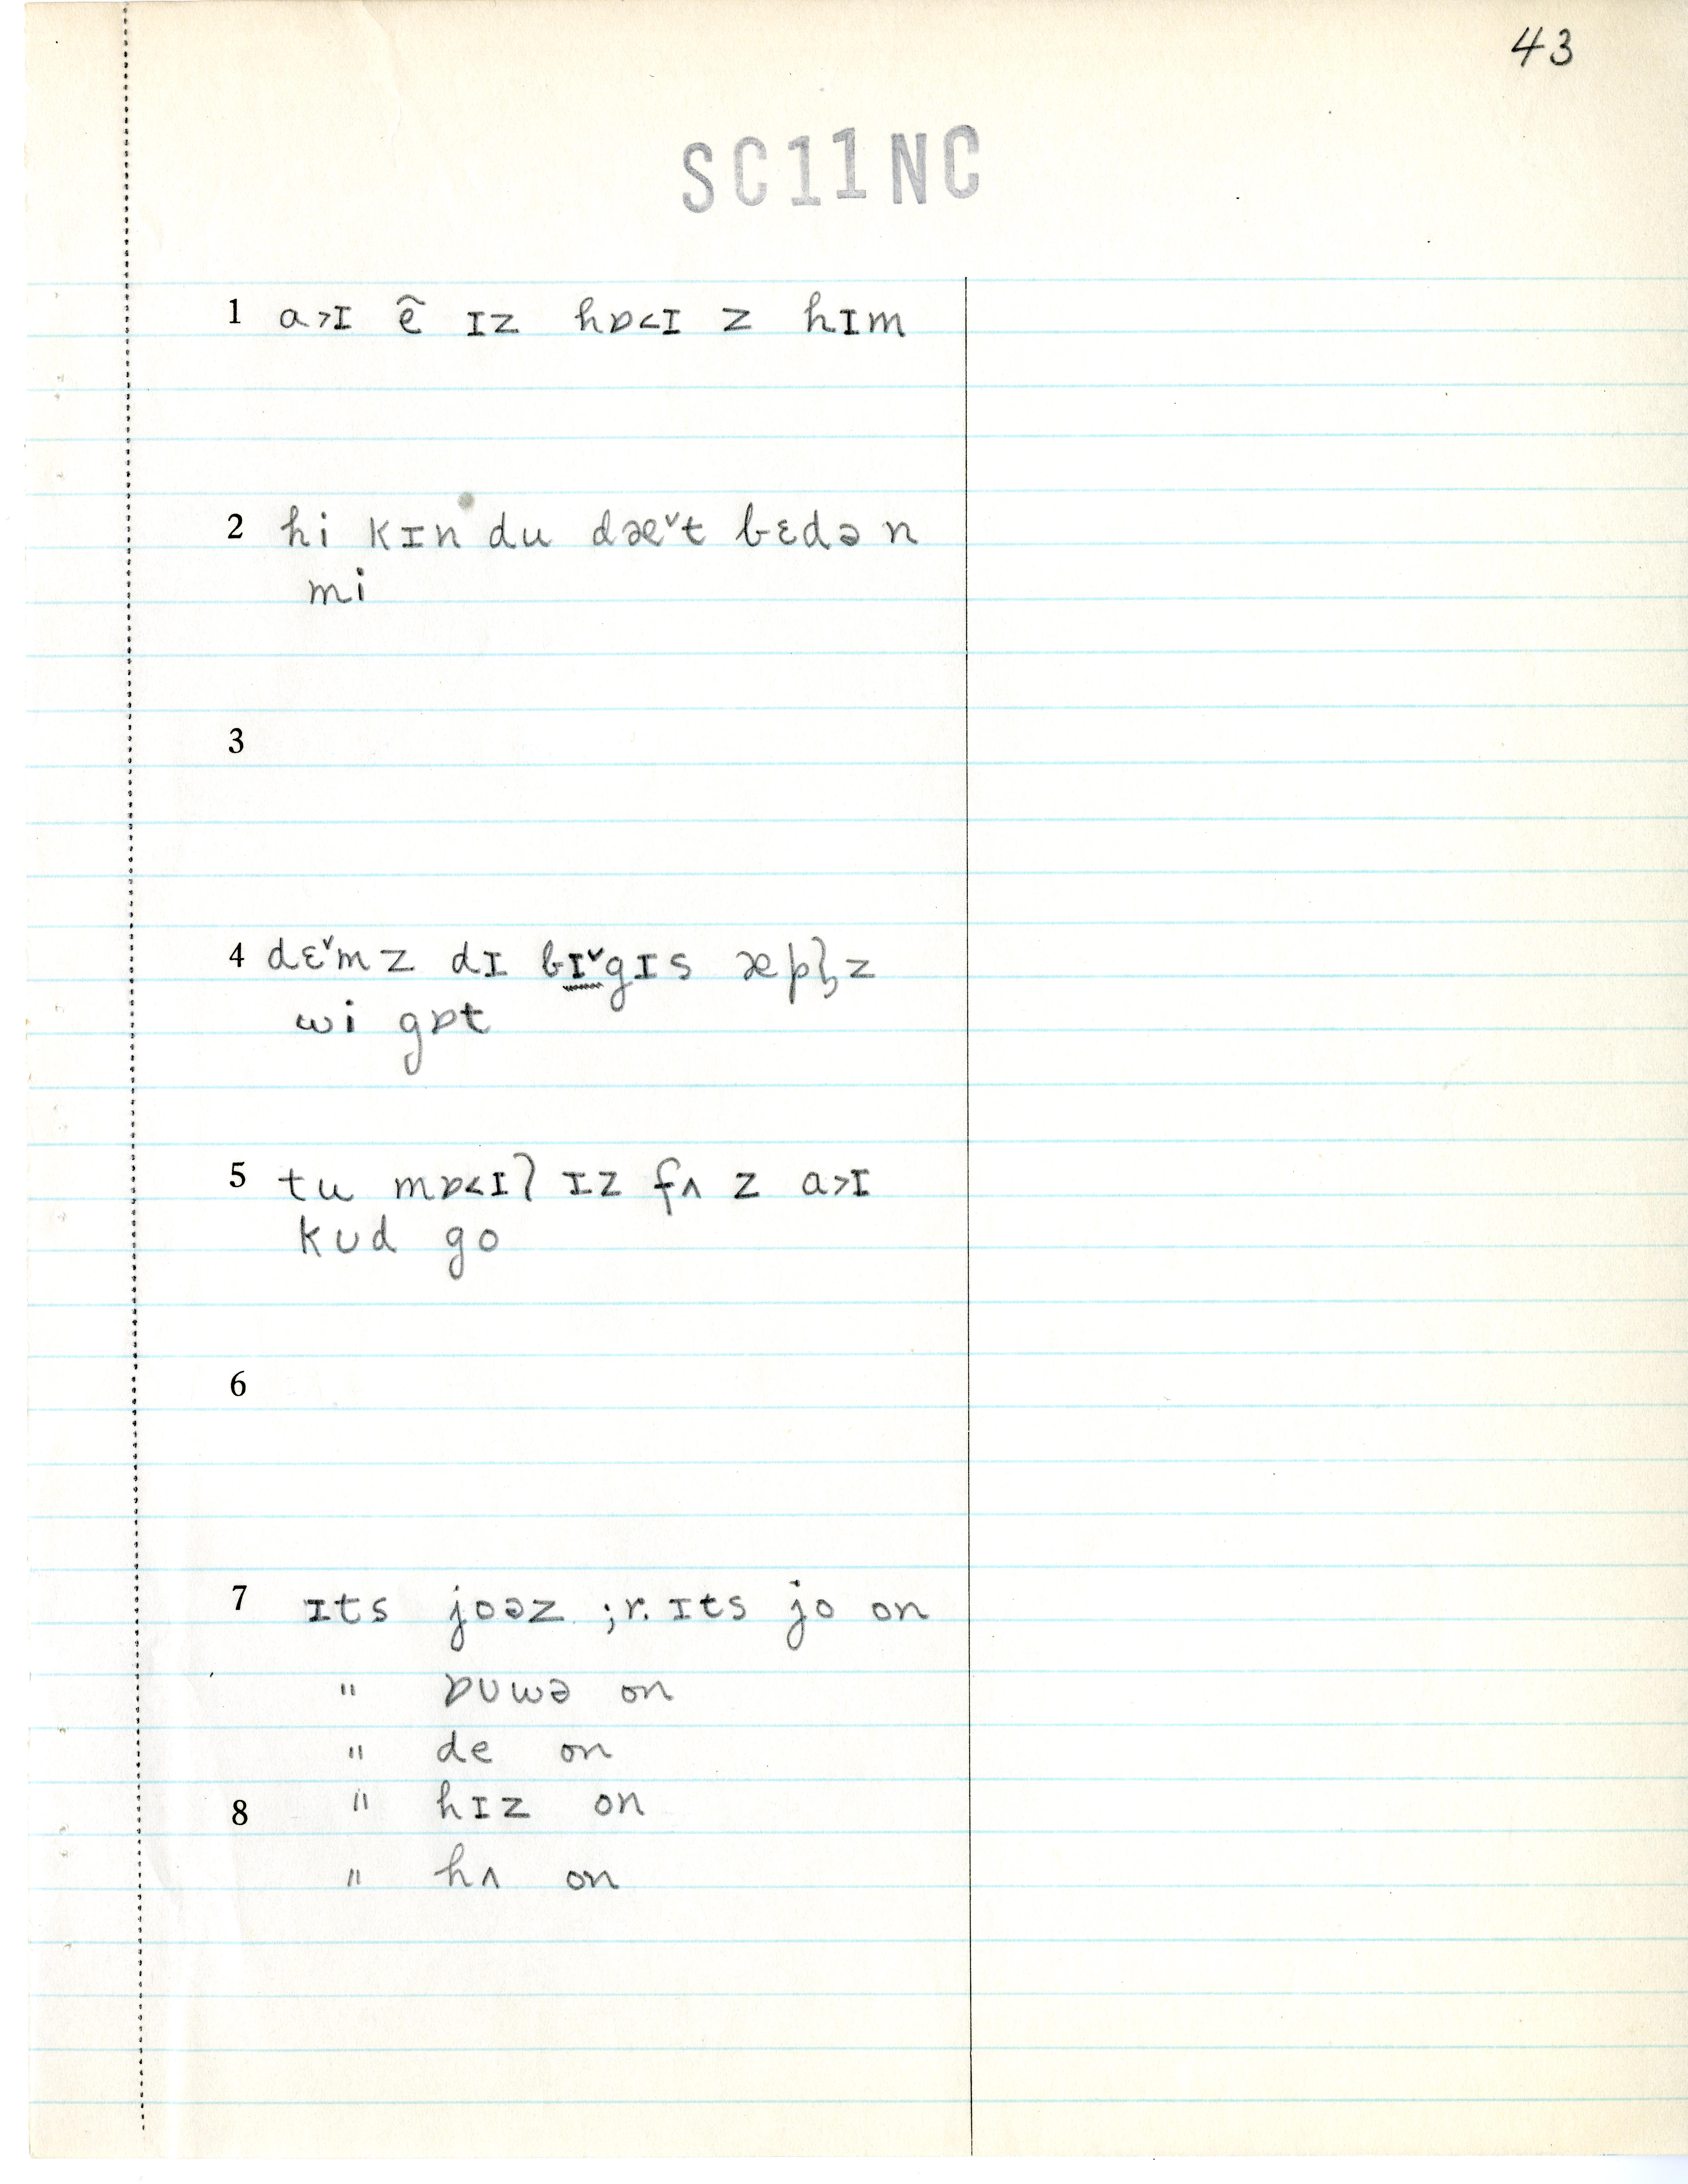 43
SC11NC
1 a>ɪ ẽ ɪz hɒ<ɪ z hɪm
2 hi kɪn du dæˇt bɛdə n
mi
3
4 dɛˇmz dɪ bɪˇgɪs æpl̩z
wi gɒt
5 tu mɒ<ɪʔ ɪz fʌ z a>ɪ
kʊd go
6
7 ɪts joəz ;r. ɪts jo on
" ɒʊwə on
" de on
8 " hɪz on
" hʌ on